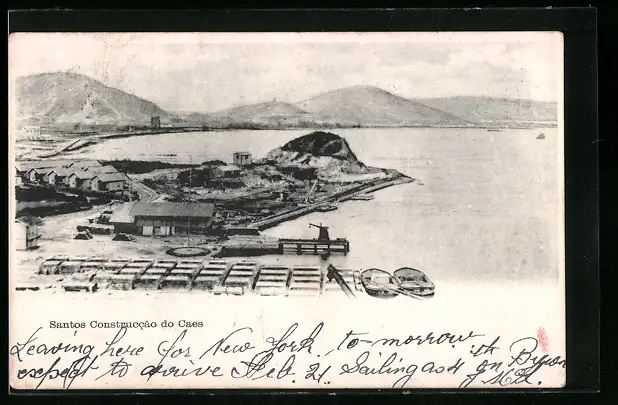 Santos Construcção do Caes
Leaving here for New York. to-morrow
expect to arrive Feb. 21. Sailing as 4th on Byron